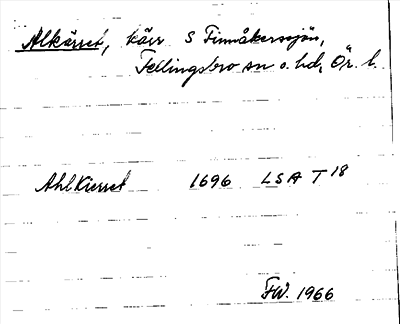 Alkärret, kärr S Finnåkerssjön,
Fellingsbro sn o. hd, Ör. l.
Ahl Kierret 1696 LSA T 18
FW. 1966